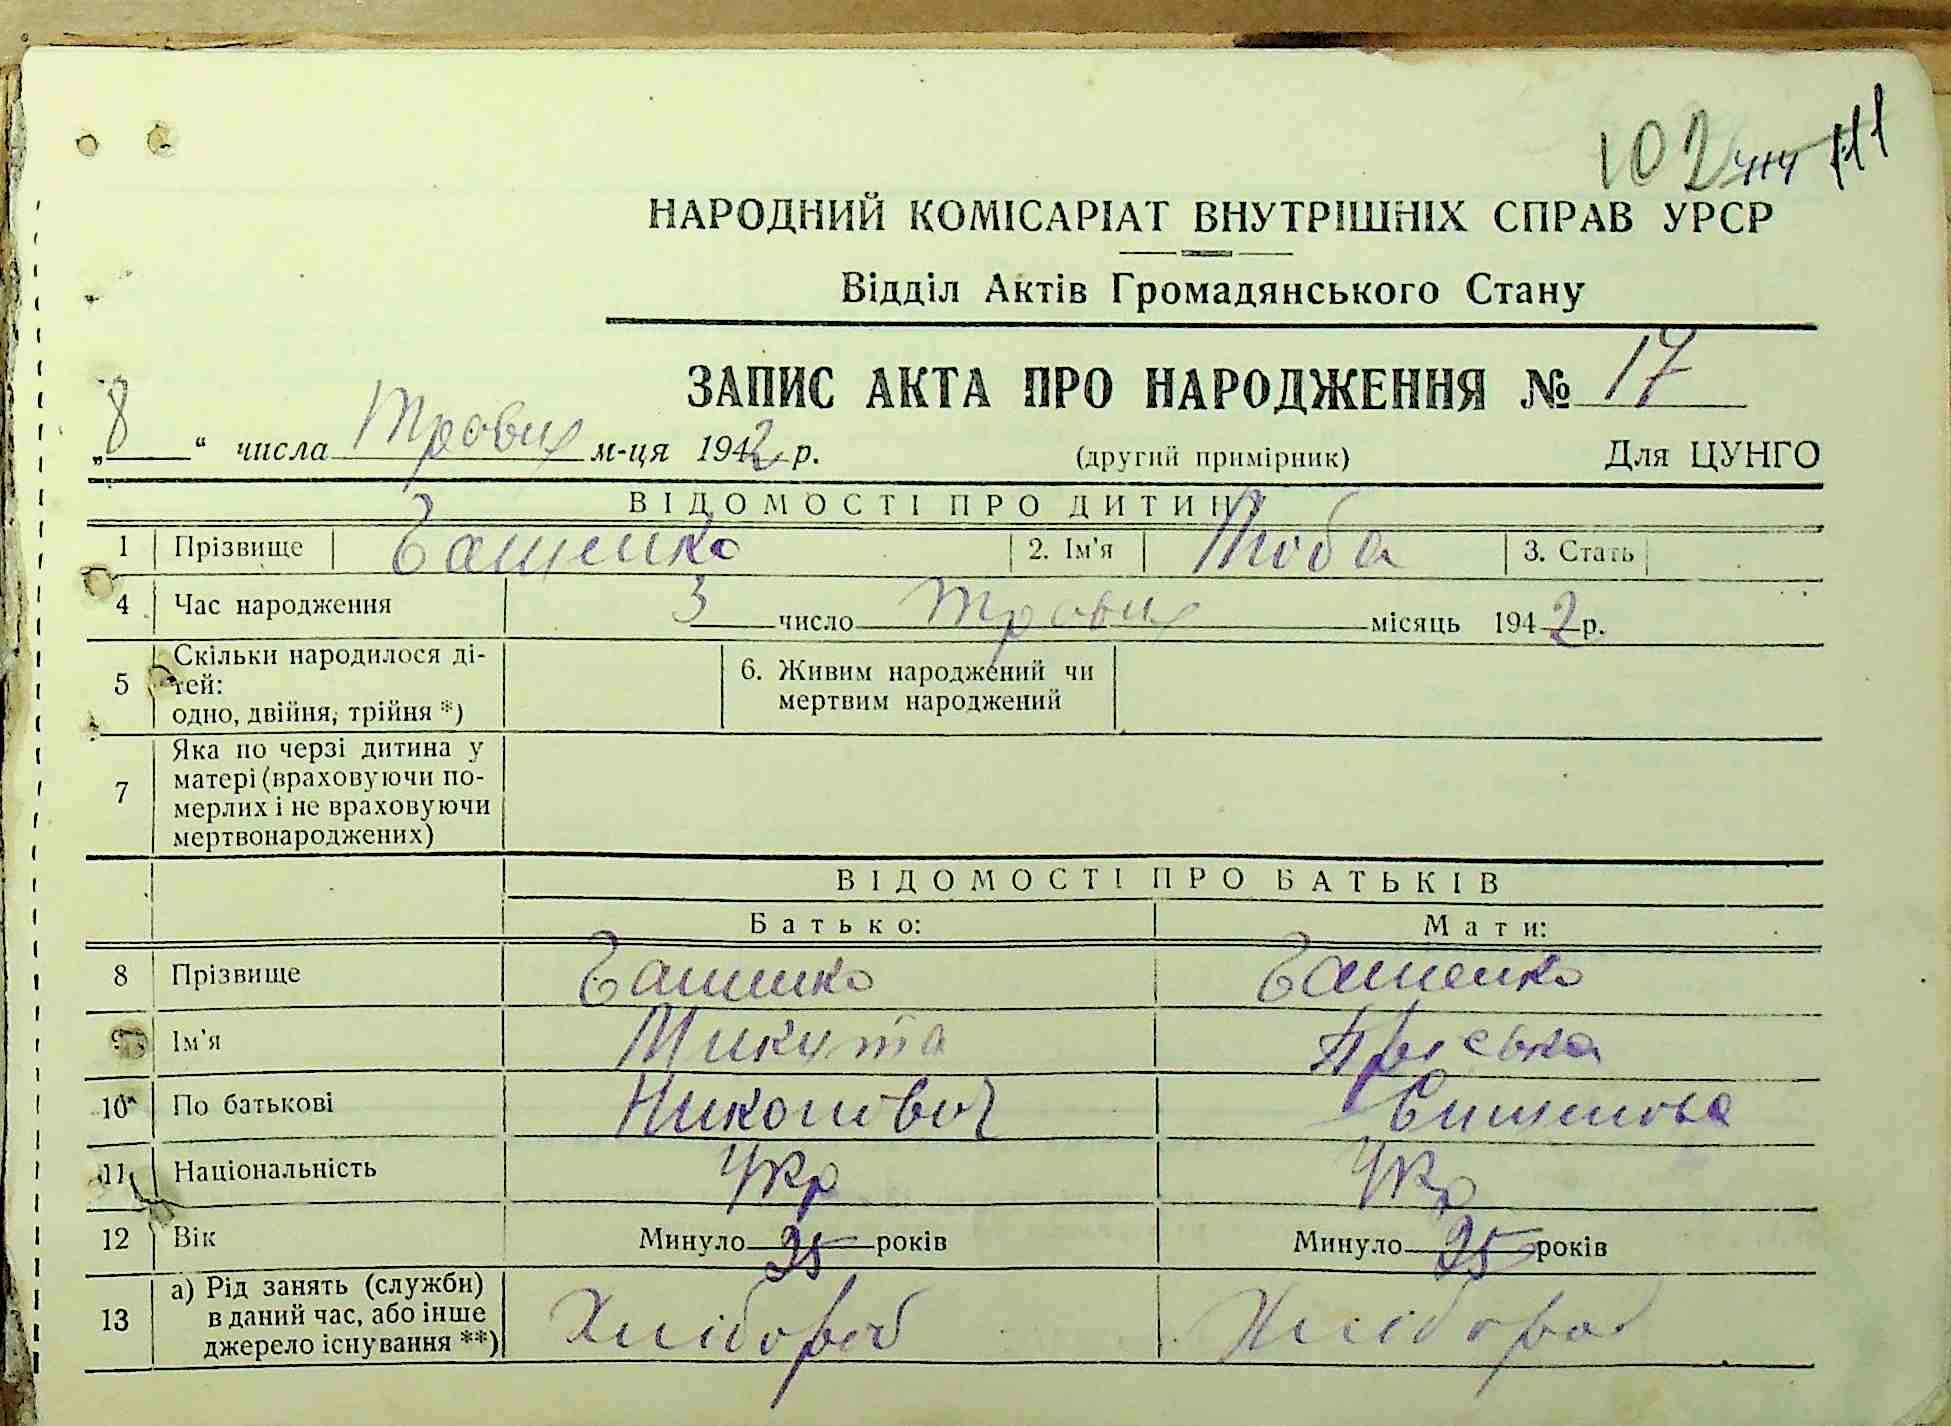 102 111
НАРОДНИЙ КОМІСАРІАТ ВНУТРІШНІХ СПРАВ УРСР
Відділ Актів Громадянського Стану
ЗАПИС АКТА ПРО НАРОДЖЕННЯ № 17
„8“ числа м-ця 1942 р. (другий примірник) Для ЦУНГО
ВІДОМОСТІ ПРО ДИТИНУ
1 Прізвище 2. Ім'я Люба 3. Стать
4 Час народження 3 число місяць 1942 р.
5 Скільки народилося ді-
тей:
одно, двійня, трійня *)
6. Живим народжений чи
мертвим народжений
7 Яка по черзі дитина у
матері (враховуючи по-
мерлих і не враховуючи
мертвонароджених)
ВІДОМОСТІ ПРО БАТЬКІВ
Батько: Мати:
8 Прізвище
9 Ім'я Микита Пріська
10 По батькові Никонович
11 Національність Укр Укр
12 Вік Минуло 25 років Минуло 25 років
13 а) Рід занять (служби)
в даний час, або інше
джерело існування **)
Хлібороб Хлібороб